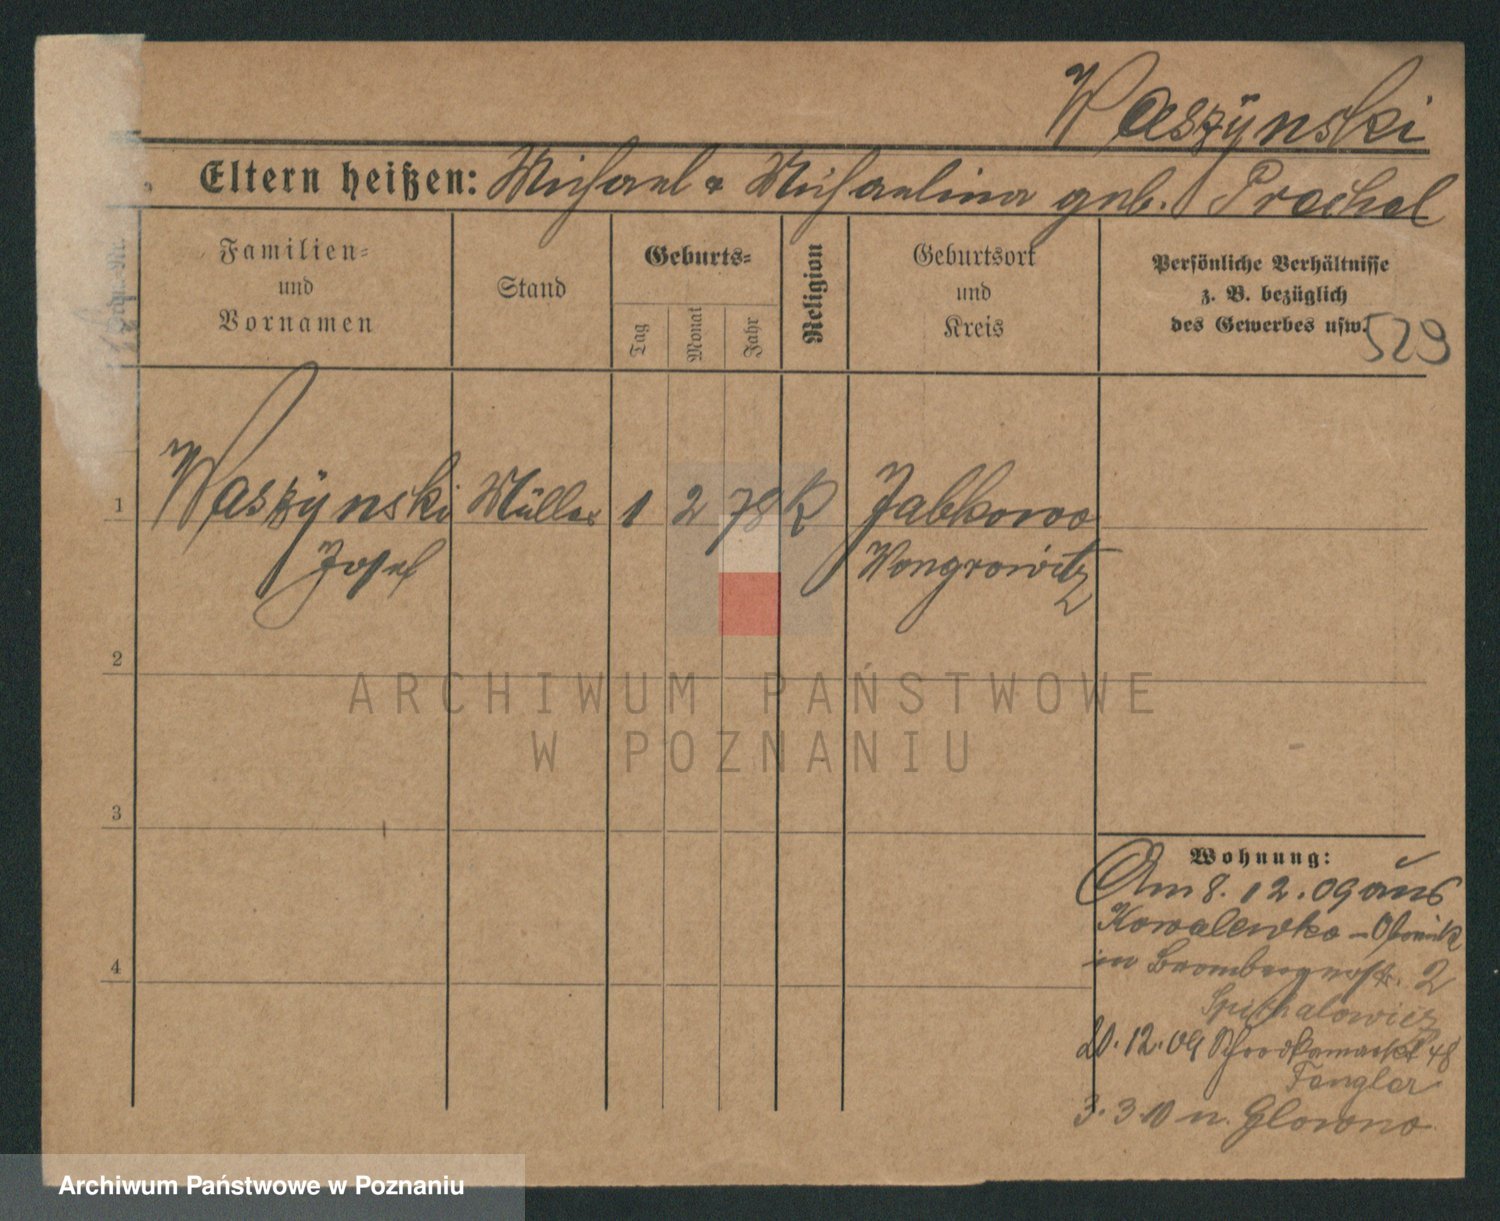 Waszÿnski
Eltern heißen: Michael & Michaelina geb. Prachel
Lfde. Nr.
Familien-
und
Vornamen
Stand
Geburts-
Tag
Monat
Jahr
Religion
Geburtsort
und
Kreis
Persönliche Verhältnisse
z. B. bezüglich
des Gewerbes usw.
529
1 Waszÿnski Müller 1 2 78 K Jabkowo
Josef Wongrowitz
2
3
4
Wohnung:
Am 8. 12. 09 aus
Kowalewko - Obornik
in Brombergerstr. 2
Spichalowicz
20. 12. 09 Schrodkamarkt 48
Fengler
3. 3. 10 n. Glowno
ARCHIWUM PAŃSTWOWE
W POZNANIU
Archiwum Państwowe w Poznaniu